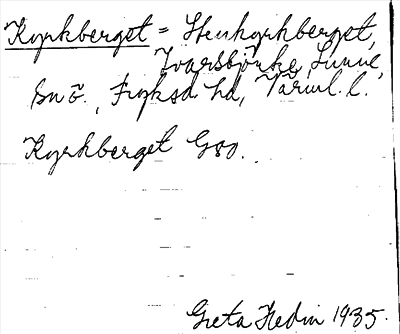 Kyrkberget = Stenkyrkberget,
Ivarsbjörke, Sunne,
sn ö., Fryksd. hd, Värml. l.
Kyrkberget Gso.
Greta Hedin 1935.